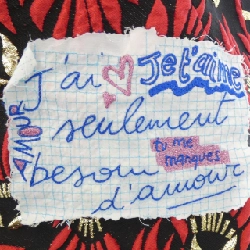 J'ai
Je t'aime
AMOUR
seulement
tu me
manques
besoin
d'amour